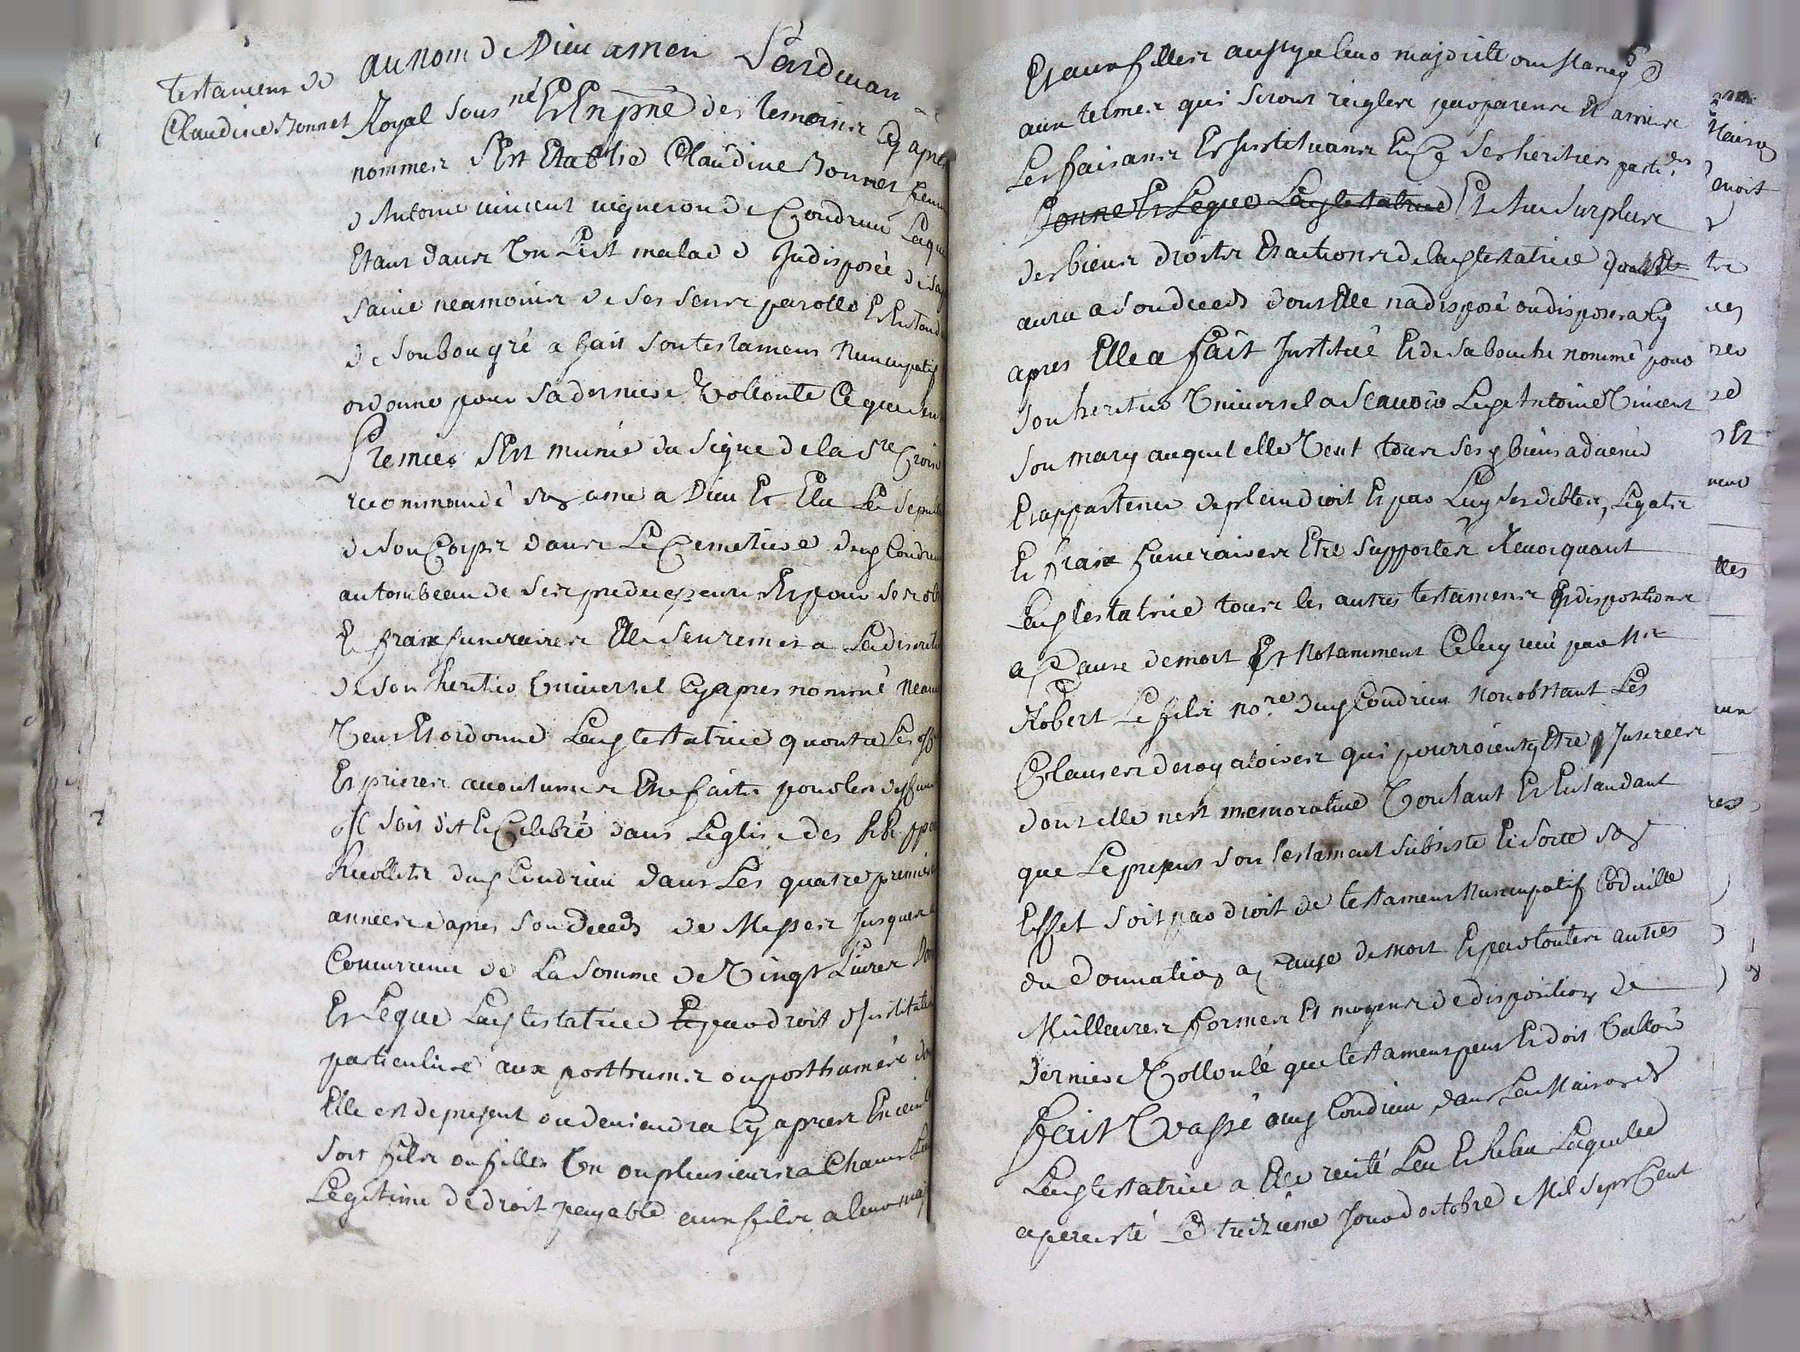 Testament de
Claudine Bonnet
au nom de Dieu amen Pardevan
Royal sous né Et En pnce des temoins Cy apres
nommes s'Est Etablie Claudine Bonnet femm
d Antoine vincent vigneron de Condrieu Laque
Etant dans Un Lict malade Indisposée de sa
saine neamoins de ses sens parolle Et Entend
de son bon gré a fait son testament Nuncupatif
ordonne pour sa derniere Vollonté Ce que sui
Premier s'Est munie du signe de la Ste Croix
recommandé son ame a Dieu Et Elu Sa Sepul
de son Corps dans Le Cemetiere dud Condrieu
au tombeau de ses predecesseurs Et pour ses ob
Et fraix funeraires Elle s'en remet a La discreti
de son heritier Universel Cy apres nommé Neanm
Veut Et ordonne Lad testatrice qu'outre Les off
Et prieres accoutumes Etre faits pour les deffun
Il soit dit Et Celebré dans L'eglise des RR pp
Recollets dud Condrieu dans Les quatre premieres
années d'apres son deceds de Messes Jusques a
Concurrence de La Somme de Vingt Livres Do
Et Legue Lad testatrice Et par droit d'Institution
particuliere aux posthumes ou posthumés do
Elle est de present ou deviendra Cy apres Enceinte
soit fils ou filles Un ou plusieurs a Chacun La
Legitime de droit payable aux fils a leur maj
Et aux filles aussy a leur majorité ou Mariage
aux termes qui seront reigles par parens Et amis
Les faisant Et Instituant En Ce Ses heritiers parti.ers
Donne Et Legue Lad testatrice Et Au Surplus
des biens droits Et actions de lad testatrice quelle
aura a son deceds dont Elle n'a disposé ou disposera Cy
apres Elle a fait Institué Et de sa bouche nommé pour
son heritier Universel a Scavoir Led Antoine Vincent
son mary auquel elle Veut tous ses d biens advenir
Et appartenir de plein droit Et par Luy ses debtes, Legats
Et fraix funeraires Etre supportés Revoquant
Lad testatrice tous les autres testamens Et dispositions
a Cause de mort Et Notamment Celuy reçu par Me
Robert Le fils nore dud Condrieu nonobstant Les
Clauses derogatoires qui pourroient y Etre Inserees
dont elle n'est memorative Voulant Et Entandant
que Le present son testament subsiste Et sorte son
Effet soit par droit de testament Nuncupatif Codicille
ou Donnation a Cause de mort Et par toutes autres
Meilleures formes Et moyens de disposition de
derniere Vollonté que testament peut Et doit Valloir
fait Et passé aud Condrieu dans La Maison de
Lad testatrice a Elle recité Leu Et Releu Laquelle
a persisté Le treizieme Jour d'octobre Mil Sept Cent